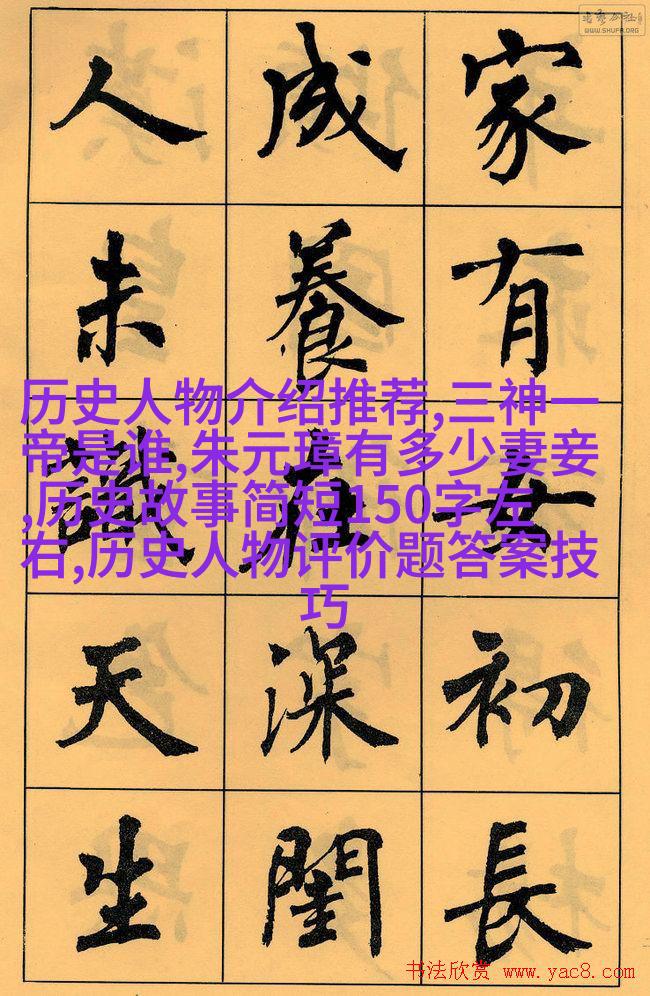 WWW.SHUFA.ORG
家有女初長
成養在深閨
人未識天生
历史人物介绍推荐,三神一
帝是谁,朱元璋有多少妻妾
,历史故事简短150字左
右,历史人物评价题答案技
巧
书法欣赏 www.yac8.com